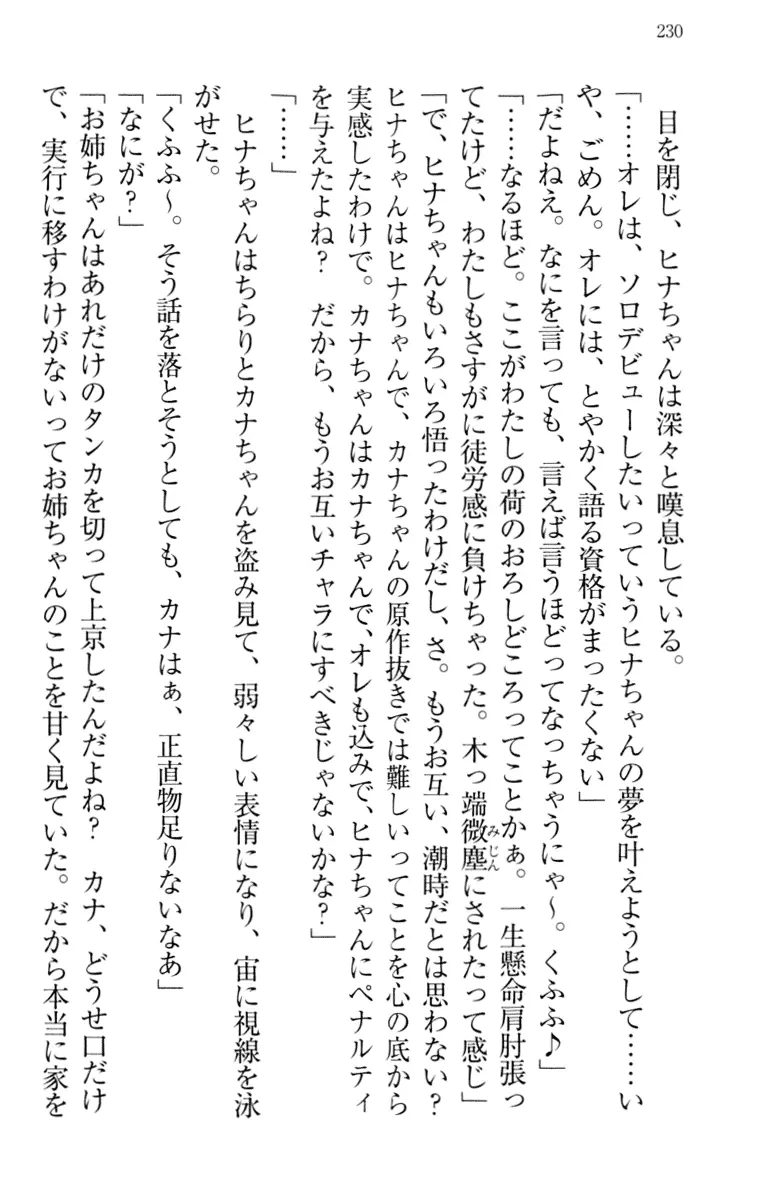 230
目を閉じ、ヒナちゃんは深々と嘆息している。
「……オレは、ソロデビューしたいっていうヒナちゃんの夢を叶えようとして……い
や、ごめん。オレには、とやかく語る資格がまったくない」
「だよねえ。なにを言っても、言えば言うほどってなっちゃうにゃ〜。くふふ♪」
「……なるほど。ここがわたしの荷のおろしどころってことかぁ。一生懸命肩肘張っ
てたけど、わたしもさすがに徒労感に負けちゃった。木っ端微塵にされたって感じ」
「で、ヒナちゃんもいろいろ悟ったわけだし、さ。もうお互い、潮時だとは思わない？
ヒナちゃんはヒナちゃんで、カナちゃんの原作抜きでは難しいってことを心の底から
実感したわけで。カナちゃんはカナちゃんで、オレも込みで、ヒナちゃんにペナルティ
を与えたよね？　だから、もうお互いチャラにすべきじゃないかな？」
「……」
ヒナちゃんはちらりとカナちゃんを盗み見て、弱々しい表情になり、宙に視線を泳
がせた。
「くふふ〜。そう話を落とそうとしても、カナはぁ、正直物足りないなあ」
「なにが？」
「お姉ちゃんはあれだけのタンカを切って上京したんだよね？　カナ、どうせ口だけ
で、実行に移すわけがないってお姉ちゃんのことを甘く見ていた。だから本当に家を
みじん